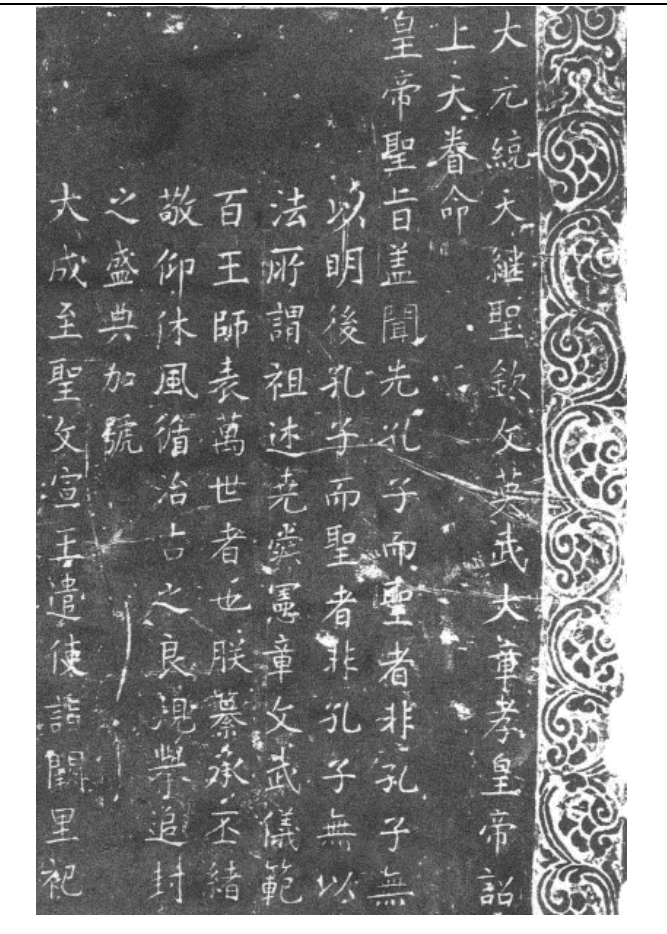 大元統天繼聖欽文英武大章孝皇帝詔
上天眷命
皇帝聖旨盖聞先孔子而聖者非孔子無
以明後孔子而聖者非孔子無以
法所謂祖述堯舜憲章文武儀範
百王師表萬世者也朕纂承丕緒
敬仰休風循治古之良規舉追封
之盛典加號
大成至聖文宣王遣使詣闕里祀